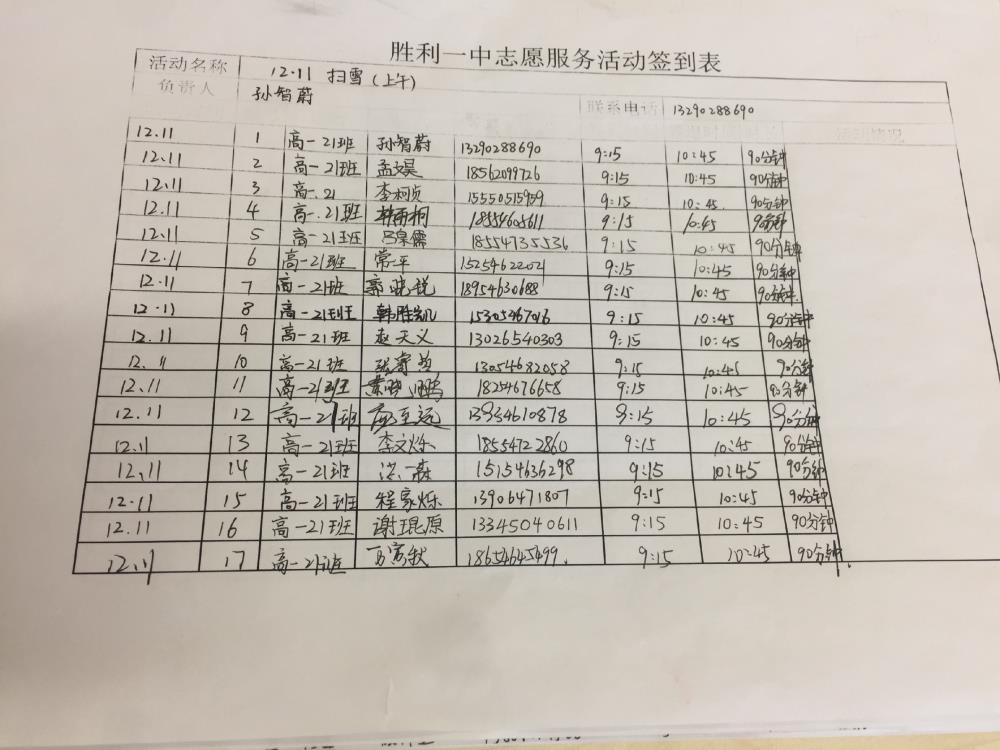 胜利一中志愿服务活动签到表
活动名称 12.11 扫雪(上午)
负责人 孙智蔚 联系电话 13290288690
12.11 1 高一21班 孙智蔚 13290288690 9:15 10:45 90分钟
12.11 2 高一21班 孟文昊 18562099726 9:15 10:45 90分钟
12.11 3 高一.21 李柯贞 15550515959 9:15 10:45 90分钟
12.11 4 高一.21班 韩雨桐 18554605611 9:15 10:45 90分钟
12.11 5 高一21班 吕泉儒 18554735536 9:15 10:45 90分钟
12.11 6 高一21班 常平 15254622021 9:15 10:45 90分钟
12.11 7 高一21班 郭晓锐 18954630688 9:15 10:45 90分钟
12.11 8 高一21班 韩胜凯 15305467016 9:15 10:45 90分钟
12.11 9 高一21班 赵天义 13026540303 9:15 10:45 90分钟
12.11 10 高一21班 13054682058 9:15 10:45 90分钟
12.11 11 高一21班 18254676658 9:15 10:45 90分钟
12.11 12 高一21班 13954610878 9:15 10:45 90分钟
12.11 13 高一21班 李文烁 18554722860 9:15 10:45 90分钟
12.11 14 高一21班 15154636298 9:15 10:45 90分钟
12.11 15 高一21班 程家烁 13906471807 9:15 10:45 90分钟
12.11 16 高一21班 谢琨原 13345040611 9:15 10:45 90分钟
12.11 17 高一21班 18654645499 9:15 10:45 90分钟